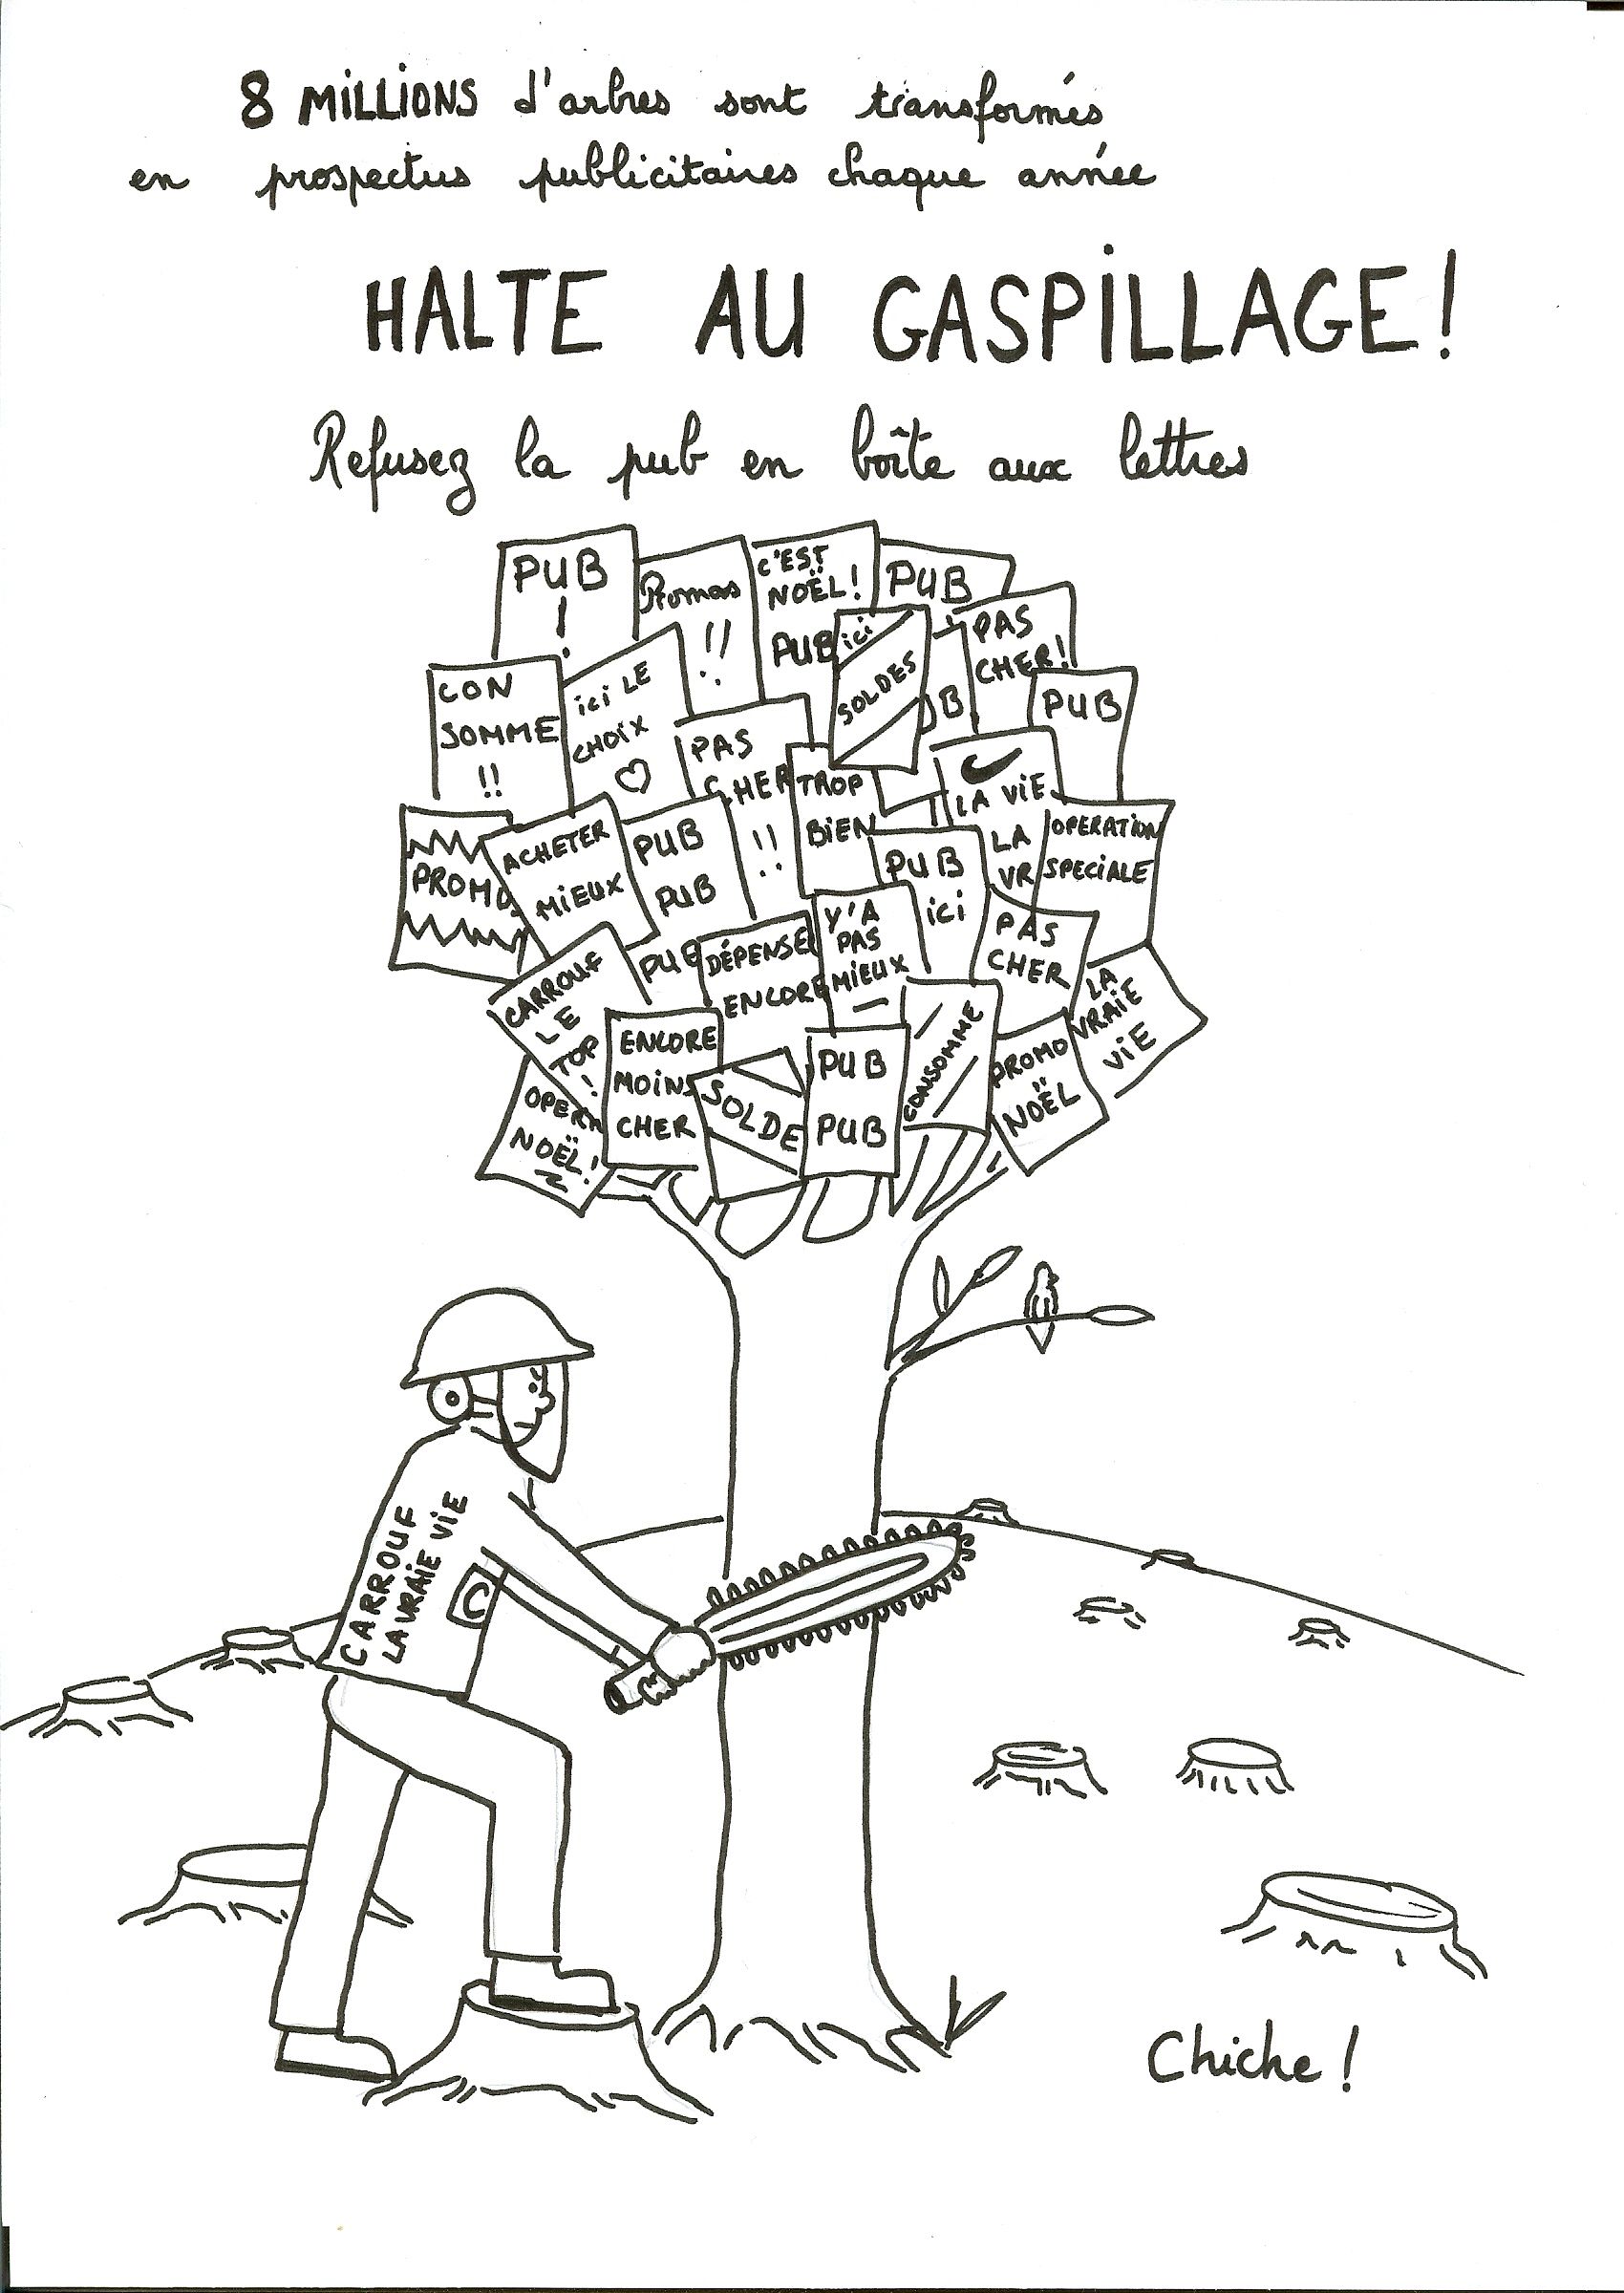 8 MILLIONS d'arbres sont transformés
en prospectus publicitaires chaque année
HALTE AU GASPILLAGE!
Refusez la pub en boîte aux lettres
PUB
!
Promos
!!
C'EST
NOËL!
PUB
PUB
ici
SOLDES
PAS
CHER!
B
PUB
CON
SOMME
!!
ici LE
CHOIX
PAS
CHER
!!
TROP
BIEN
LA VIE
LA
VR
OPERATION
SPECIALE
PROMO
ACHETER
MIEUX
PUB
PUB
PUB
PUB
ici
Y'A
PAS
MIEUX
PAS
CHER
DÉPENSE
ENCORE
CARROUF
LE
TOP
!
LA
VRAIE
VIE
ENCORE
MOINS
CHER
SOLDE
PUB
PUB
CONSOMME
PROMO
NOËL
OPERA
NOËL!
CARROUF
LA VRAIE VIE
C
Chiche!